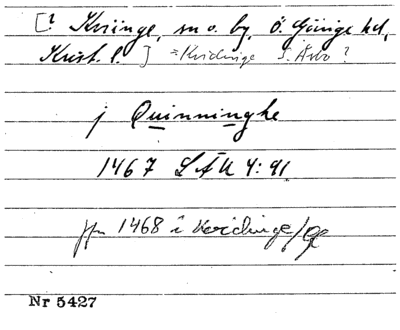 [? Kviinge, sn o. by, Ö. Göinge hd,
Krist. l. ] = Kvidinge S. Åsbo ?
j Quinninghe
1467 LÄU 4:91.
jfr 1468 i Kvidinge/
Nr 5427